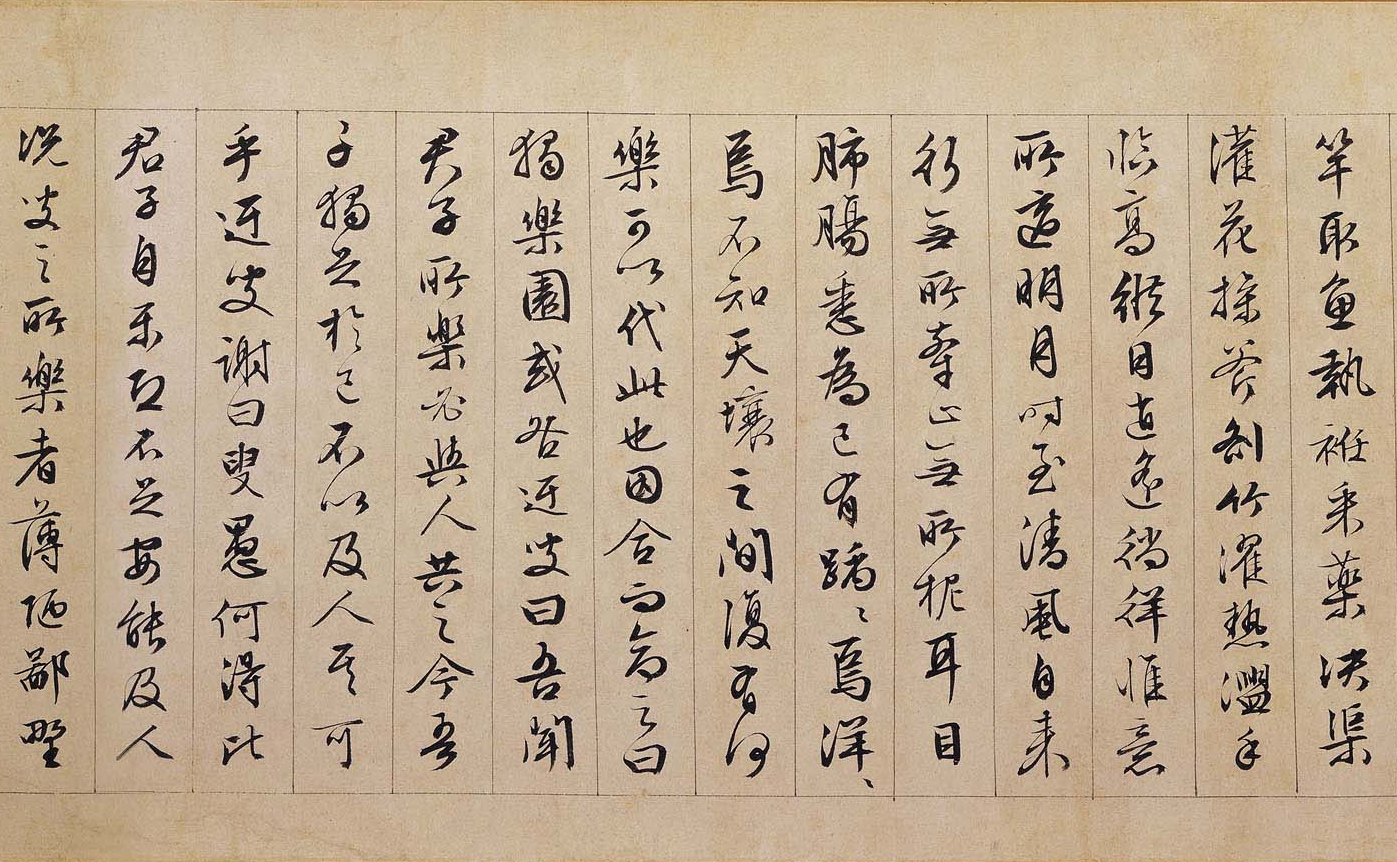 竿取魚執衽采藥決渠
灌花操斧剖竹濯熱盥手
臨高縱目逍遙徜徉惟意
所適明月時至清風自來
行無所牽止無所柅耳目
肺腸悉為己有踽〻焉洋〻
焉不知天壤之間復有何
樂可以代此也因合而命之曰
獨樂園或咎迂叟曰吾聞
君子所樂必與人共之今吾
子獨足於己不以及人其可
乎迂叟謝曰叟愚何得比
君子自樂恐不足安能及人
況叟之所樂者薄陋鄙野